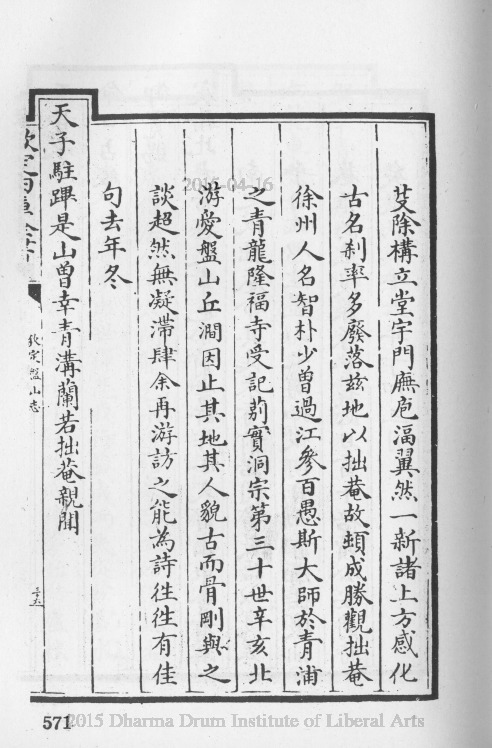 芟除構立堂宇門廡庖湢翼然一新諸上方感化
古名刹率多廢落兹地以拙菴故頓成勝觀拙菴
徐州人名智朴少曾過江參百愚斯大師於青浦
之青龍隆福寺受記莂實洞宗第三十世辛亥北
游愛盤山丘澗因止其地其人貌古而骨剛與之
談超然無凝滯肆余再游訪之能為詩徃徃有佳
句去年冬
天子駐蹕是山曽幸青溝蘭若拙菴親聞
欽定盤山志
571
2015 Dharma Drum Institute of Liberal Arts